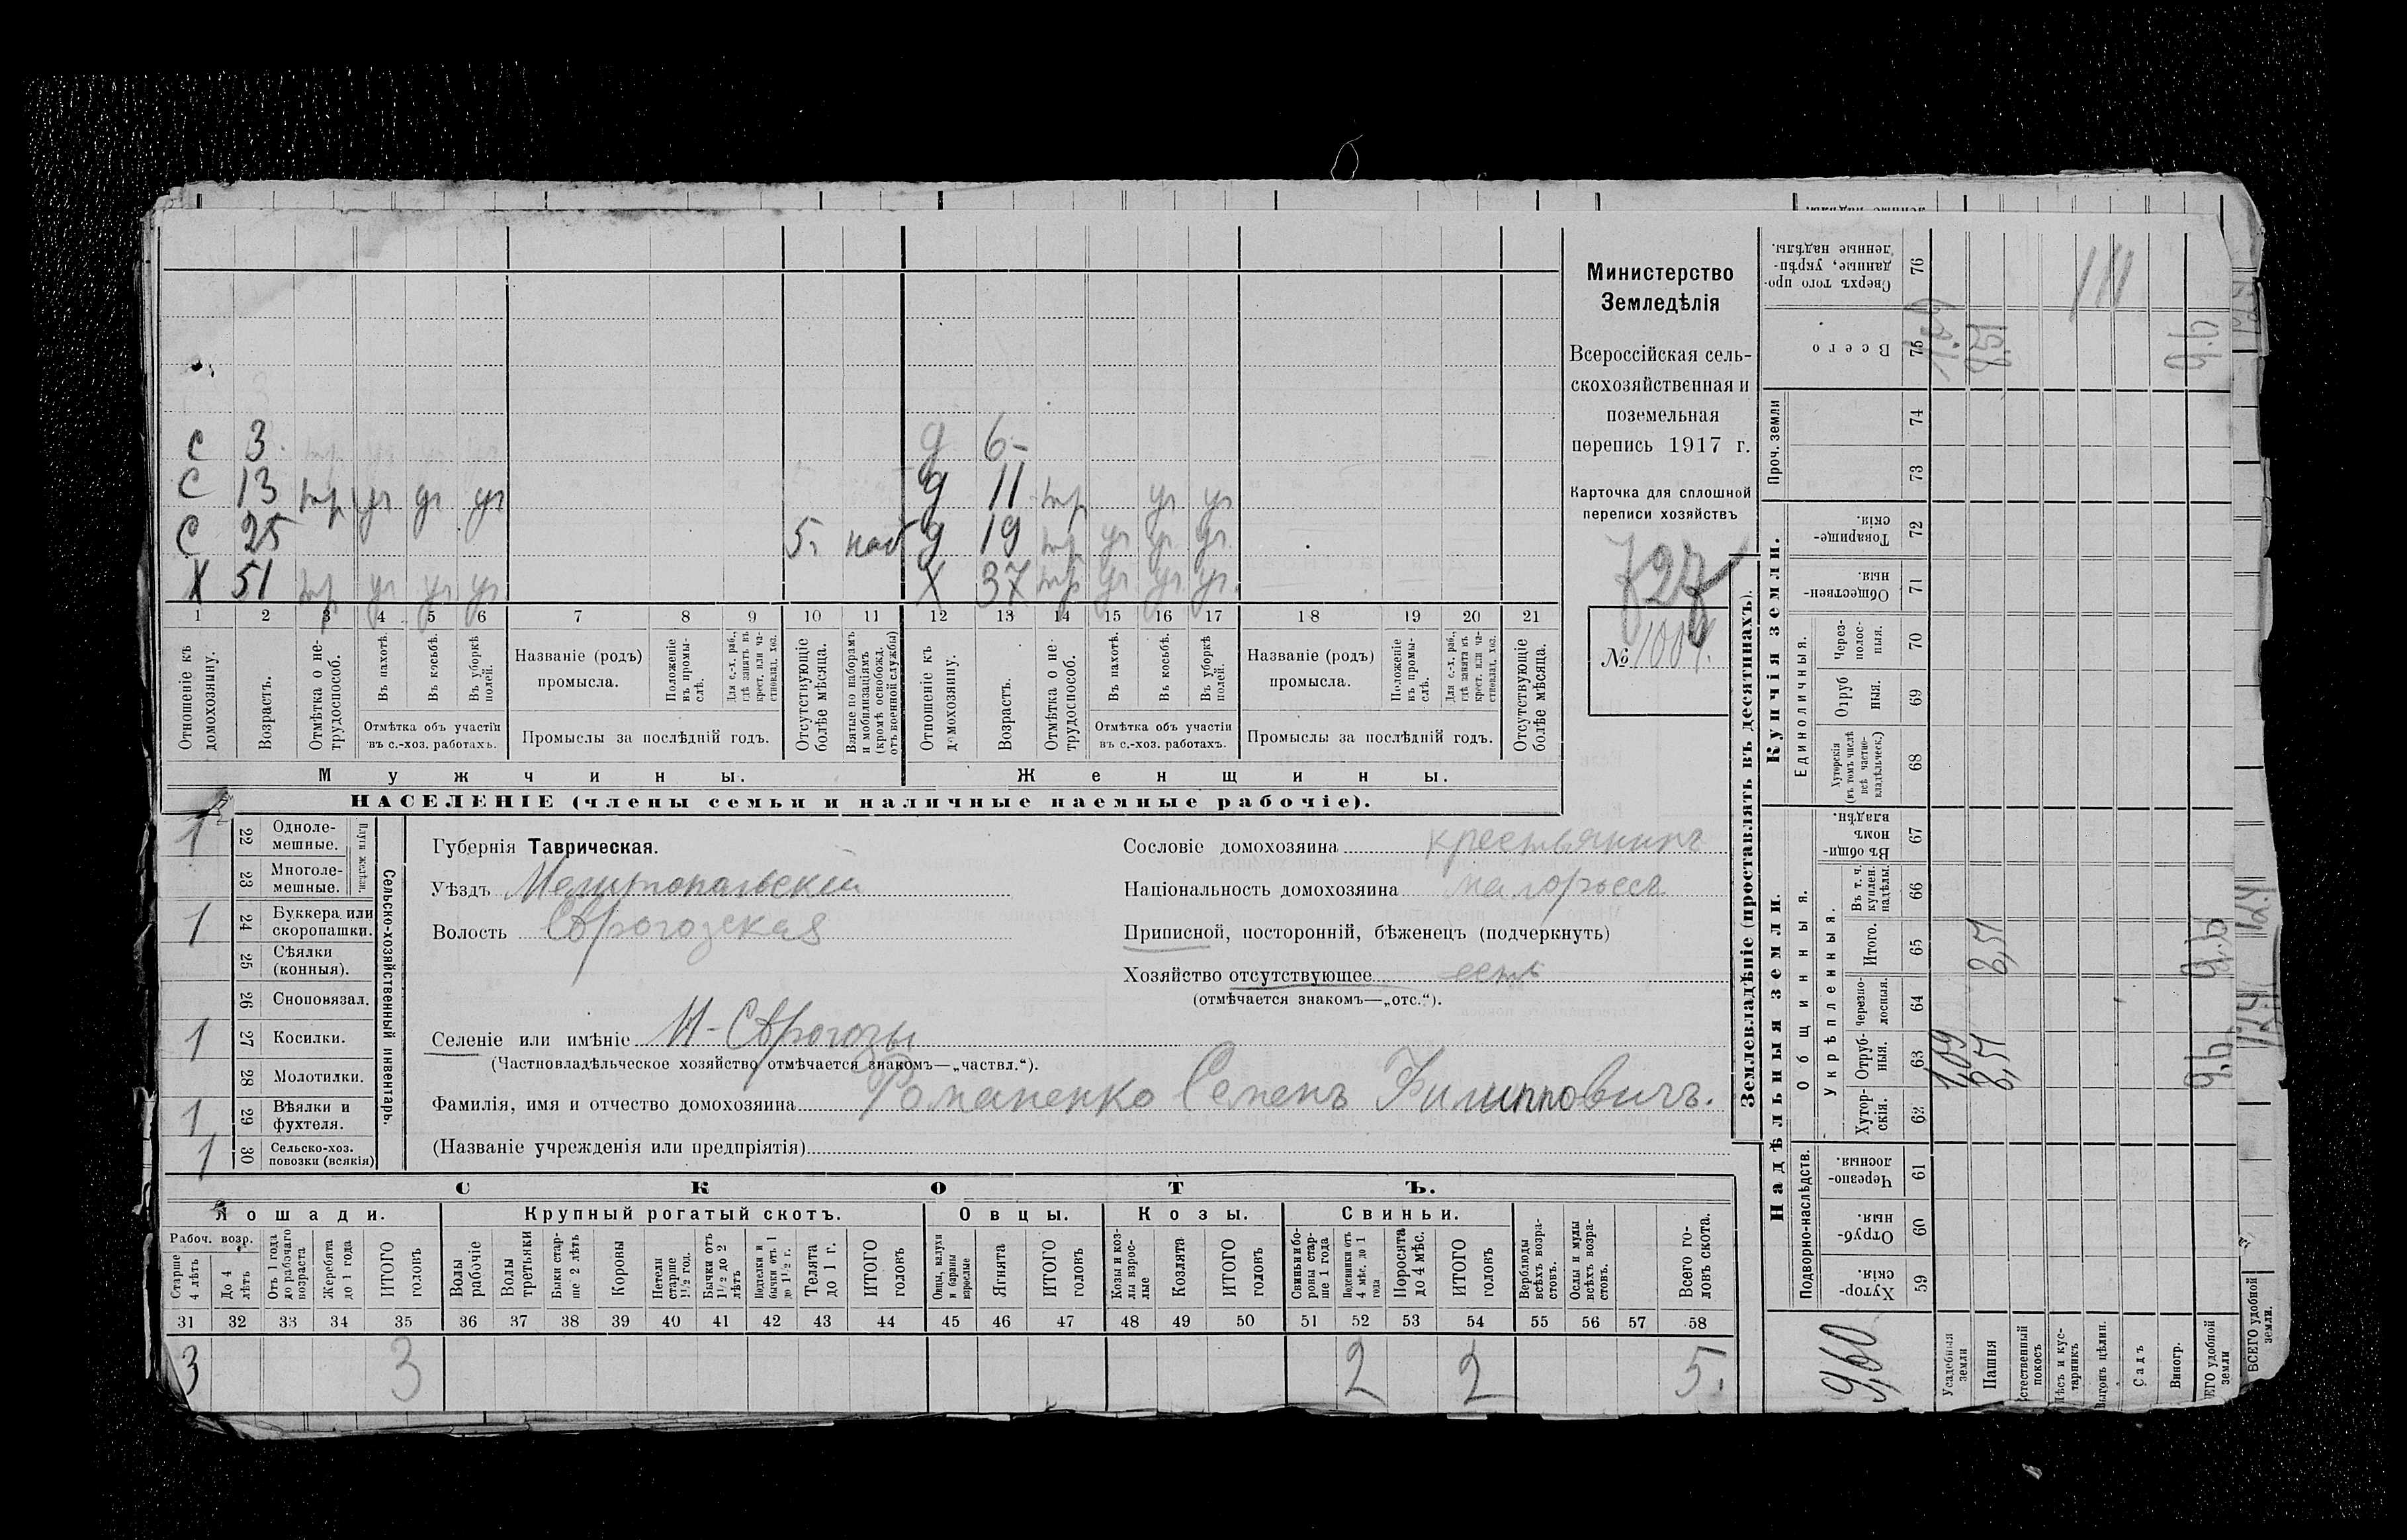 с 3. д 6-
С 13 тр уг уг уг д 11 тр уг уг
С 25 5. наб д 19 тр уг уг уг
X 51 тр уг уг уг X 37 тр уг уг уг.
1 2 3 4 5 6 7 8 9 10 11 12 13 14 15 16 17 18 19 20 21
Отношеніе къ домохозяину.
Возрастъ.
Отмѣтка о не-
трудоспособ.
Въ пахотѣ.
Въ косьбѣ.
Въ уборкѣ
полей.
Отмѣтка объ участіи
въ с.-хоз. работахъ.
Названіе (родъ)
промысла.
Положеніе
въ промы-
слѣ.
Для с.-х. раб.,
гдѣ занятъ въ
крест. или ча-
стновлад. хоз.
Промыслы за послѣдній годъ.
Отсутствующіе
болѣе мѣсяца.
Взятые по наборамъ
и мобилизаціямъ
(кромѣ освобожд.
отъ военной службы)
Отношеніе къ
домохозяину.
Возрастъ.
Отмѣтка о не-
трудоспособ.
Въ пахотѣ.
Въ косьбѣ.
Въ уборкѣ
полей.
Отмѣтка объ участіи
въ с.-хоз. работахъ.
Названіе (родъ)
промысла.
Положеніе
въ промы-
слѣ.
Для с.-х. раб.,
гдѣ занята въ
крест. или ча-
стновлад. хоз.
Промыслы за послѣдній годъ.
Отсутствующіе
болѣе мѣсяца.
Мужчины.
Женщины.
НАСЕЛЕНІЕ (члены семьи и наличные наемные рабочіе).
Министерство
Земледѣлія
Всероссійская сель-
скохозяйственная и
поземельная
перепись 1917 г.
Карточка для сплошной
переписи хозяйствъ
727
№ 1004.
1 22 Одноле-
мешные.
23 Многоле-
мешные.
Плуги желѣзн.
1 24 Буккера или
скоропашки.
25 Сѣялки
(конныя).
26 Сноповязал.
1 27 Косилки.
28 Молотилки.
1 29 Вѣялки и
фухтеля.
1 30 Сельско-хоз.
повозки (всякія)
Сельско-хозяйственный инвентарь.
Губернія Таврическая.
Уѣздъ Мелитопольскій
Волость
Селеніе или имѣніе
(Частновладѣльческое хозяйство отмѣчается знакомъ—„частвл.“).
Фамилія, имя и отчество домохозяина Романенко Семенъ Филипповичъ.
(Названіе учрежденія или предпріятія)
Сословіе домохозяина крестьянинъ
Національность домохозяина малороссъ
Приписной, посторонній, бѣженецъ (подчеркнуть)
Хозяйство отсутствующее есть
(отмѣчается знакомъ—„отс.“).
СКОТЪ.
Лошади.
Крупный рогатый скотъ.
Овцы.
Козы.
Свиньи.
Рабоч. возр.
Старше
4 лѣтъ
До 4
лѣтъ
Отъ 1 года
до рабочаго
возраста
Жеребята
до 1 года
ИТОГО
головъ
Волы
рабочіе
Волы
третьяки
Быки стар-
ше 2 лѣтъ
Коровы
Нетели
старше
1½ год.
Бычки отъ
1½ до 2
лѣтъ
Подтелки и
бычки отъ 1
до 1½ г.
Телята
до 1 г.
ИТОГО
головъ
Овцы, валухи
и бараны
взрослые
Ягнята
ИТОГО
головъ
Козы и коз-
лы взрос-
лые
Козлята
ИТОГО
головъ
Свиньи и бо-
ровы стар-
ше 1 года
Подсвинки отъ
4 мѣс. до 1
года
Поросята
до 4 мѣс.
ИТОГО
головъ
Верблюды
всѣхъ возра-
стовъ.
Ослы и мулы
всѣхъ возра-
стовъ.
Всего го-
ловъ скота.
31 32 33 34 35 36 37 38 39 40 41 42 43 44 45 46 47 48 49 50 51 52 53 54 55 56 57 58
3 3 2 2 5.
Землевладѣніе (проставлять въ десятинахъ).
Надѣльныя земли.
Купчія земли.
Проч. земли
Сверхъ того про-
данные, укрѣп-
ленные надѣлы.
76
Всего
75
74
73
Товарище-
скія.
72
Обществен-
ныя.
71
Единоличныя.
Через-
полос-
ныя.
70
Отруб
ныя.
69
Хуторскія
(въ томъ числѣ
всѣ частно-
владѣльческ.)
68
Общинныя.
Въ общин-
номъ
владѣн.
67
Укрѣпленныя.
Въ т. ч.
куплен.
надѣлы.
66
Итого.
65
Черезпо-
лосныя.
64
Отруб-
ныя.
63
Хутор-
скія.
62
Подворно-наслѣдств.
Черезпо-
лосныя.
61
Отруб-
ныя.
60
Хутор-
скія.
59
9,60
1,09
8,51
8,51
8,51
9,6
9,6
9,6
Усадебныя
земли
Пашня
Естественный
покосъ
Лѣсъ и кус-
тарникъ
Выгонъ цѣлин.
Садъ
Виногр.
ЕГО удобной
земли
ВСЕГО удобной
земли.